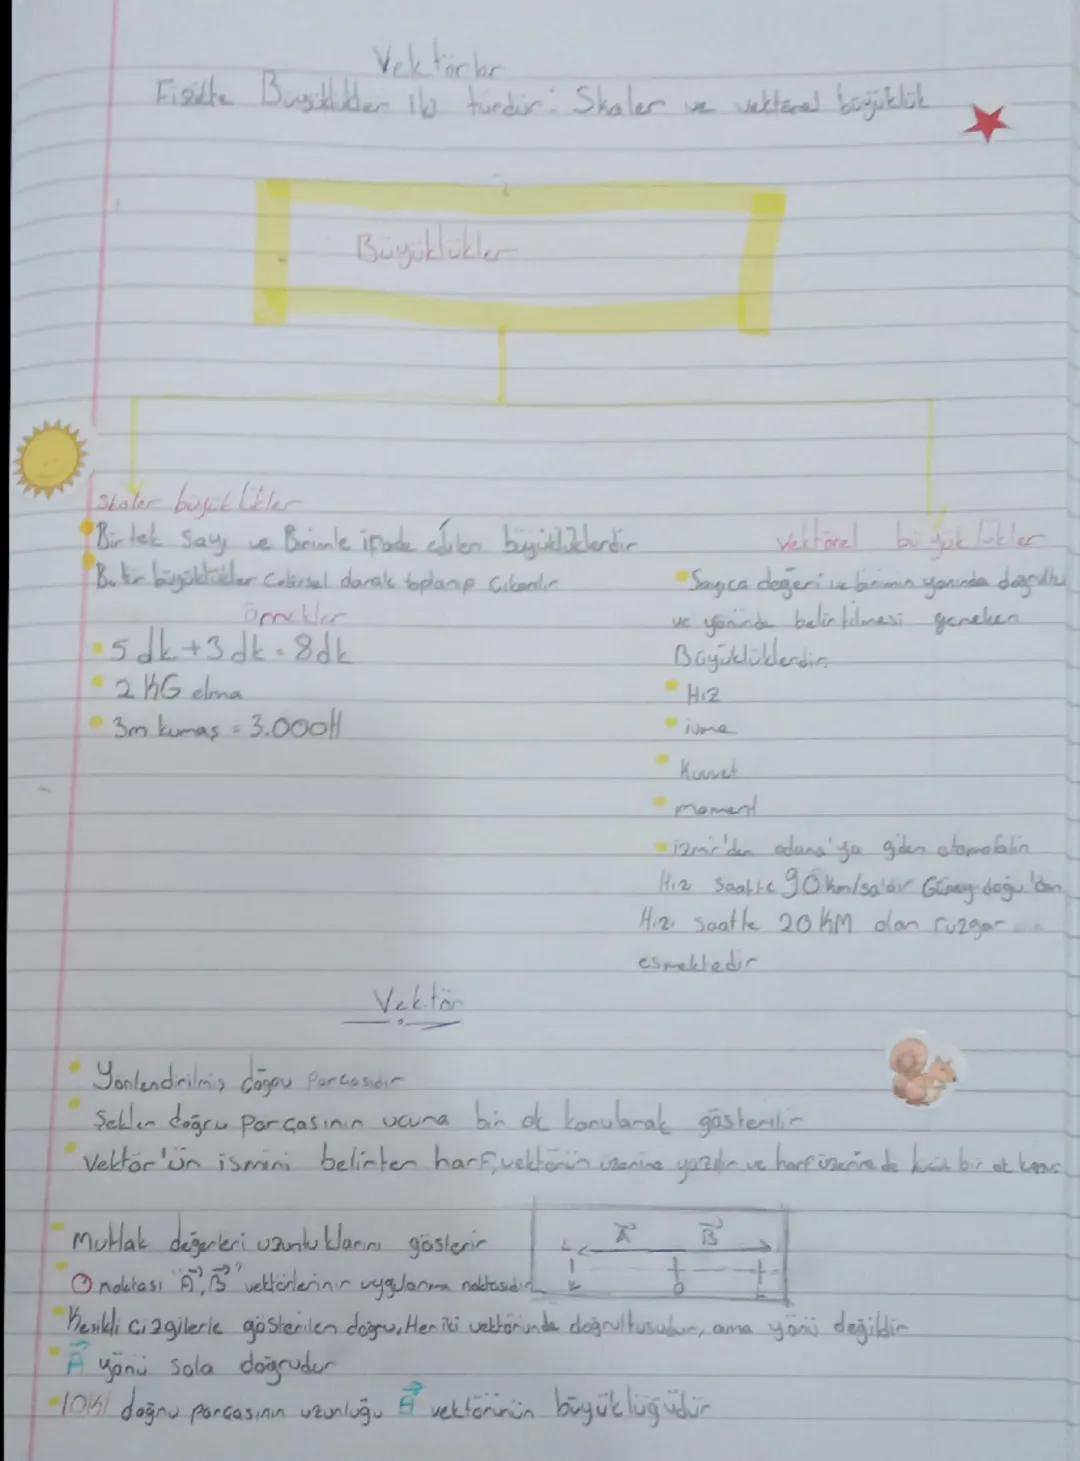 Vektörler
Fizikte Büyüklükler iki türdür: Skaler ve vektörel büyüklük
Büyüklükler
Skaler büyüklükler
Bir tek Sayı ve Birimle ifade edilen büyüklüklerdir
Bu tür büyüklükler Cebirsel olarak toplanıp Çıkarılır
Örnekler
5 dk + 3 dk = 8dk
2 KG elma
3m kumaş = 3.000tl
Vektörel büyüklükler
Sayıca değeri ve birimin yanında doğrultu
ve yönünde belirtilmesi gereken
Büyüklüklerdir
Hız
ivme
Kuvvet
moment
izmir'den adana'ya giden otomobilin
Hız saatte 90 km/sa'dir Güney doğu'dan
Hızı saatte 20 KM olan rüzgar
esmektedir
Vektör
Yönlendirilmiş doğru Parçasıdır
Şeklen doğru Parçasının ucuna bir ok konularak gösterilir
Vektör'ün ismini belirten harf, vektörün üzerine yazılır ve harf üzerine de küçük bir ok konur
A⃗ B⃗
L
0
K
Mutlak değerleri uzunluklarını gösterir
O noktası "A⃗, B⃗" vektörlerinin uygulanma noktasıdır
Kesikli çizgilerle gösterilen doğru, Her iki vektöründe doğrultusudur, ama yönü değildir
A⃗ yönü sola doğrudur
doğru parçasının uzunluğu vektörünün büyüklüğüdür